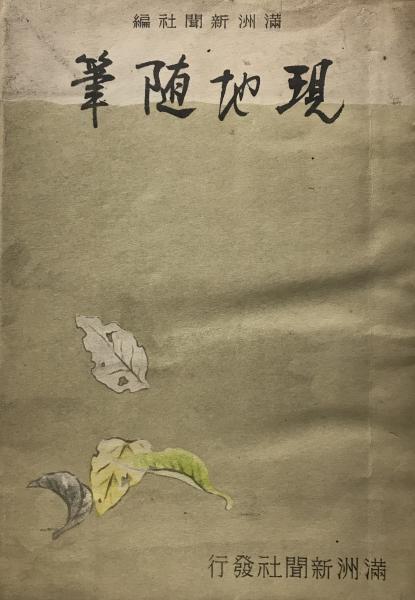 滿洲新聞社編
現地随筆
滿洲新聞社發行